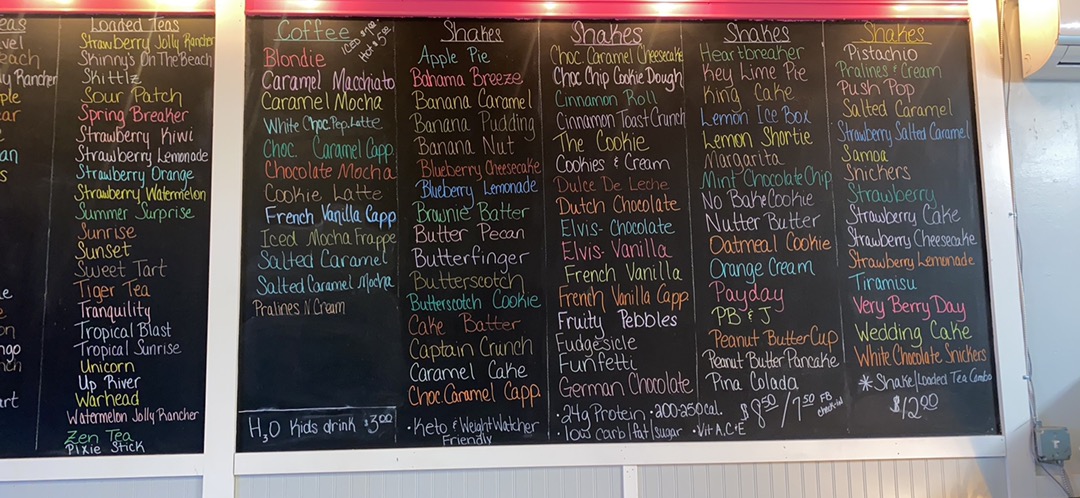 eas
vel
each
y Rancher
ple
ear
e
an
s
le
e
on
ngo
nch
art
Loaded Teas
Strawberry Jolly Rancher
Skinny's On The Beach
Skittlz
Sour Patch
Spring Breaker
Strawberry Kiwi
Strawberry Lemonade
Strawberry Orange
Strawberry Watermelon
Summer Surprise
Sunrise
Sunset
Sweet Tart
Tiger Tea
Tranquility
Tropical Blast
Tropical Sunrise
Unicorn
Up River
Warhead
Watermelon Jolly Rancher
Zen Tea
Pixie Stick
Coffee
Blondie
Caramel Macchiato
Caramel Mocha
White Choc. Pep. Latte
Choc. Caramel Capp
Chocolate Mocha
Cookie Latte
French Vanilla Capp
Iced Mocha Frappe
Salted Caramel
Salted Caramel Mocha
Pralines N Cream
H3O Kids drink $3.00
Shakes
Apple Pie
Bahama Breeze
Banana Caramel
Banana Pudding
Banana Nut
Blueberry Cheesecake
Blueberry Lemonade
Brownie Batter
Butter Pecan
Butterfinger
Butterscotch
Butterscotch Cookie
Cake Batter
Captain Crunch
Caramel Cake
Choc. Caramel Capp
• Keto & Weight Watcher
Friendly
Shakes
Choc. Caramel Cheesecake
Choc Chip Cookie Dough
Cinnamon Roll
Cinnamon Toast Crunch
The Cookie
Cookies & Cream
Dulce De Leche
Dutch Chocolate
Elvis- Chocolate
Elvis- Vanilla
French Vanilla
French Vanilla Capp
Fruity Pebbles
Fudgesicle
Funfetti
German Chocolate
• 24g Protein • 200-250 cal.
• low carb/fat/sugar • Vit A,C&E
Shakes
Heartbreaker
Key Lime Pie
King Cake
Lemon Ice Box
Lemon Shortie
Margarita
Mint Chocolate Chip
No Bake Cookie
Nutter Butter
Oatmeal Cookie
Orange Cream
Payday
PB & J
Peanut Butter Cup
Peanut Butter Pancake
Pina Colada
$8.50/7.50 FB
check-in
Shakes
Pistachio
Pralines & Cream
Push Pop
Salted Caramel
Strawberry Salted Caramel
Samoa
Snickers
Strawberry
Strawberry Cake
Strawberry Cheesecake
Strawberry Lemonade
Tiramisu
Very Berry Day
Wedding Cake
White Chocolate Snickers
* Shake/Loaded Tea Combo
$12.00